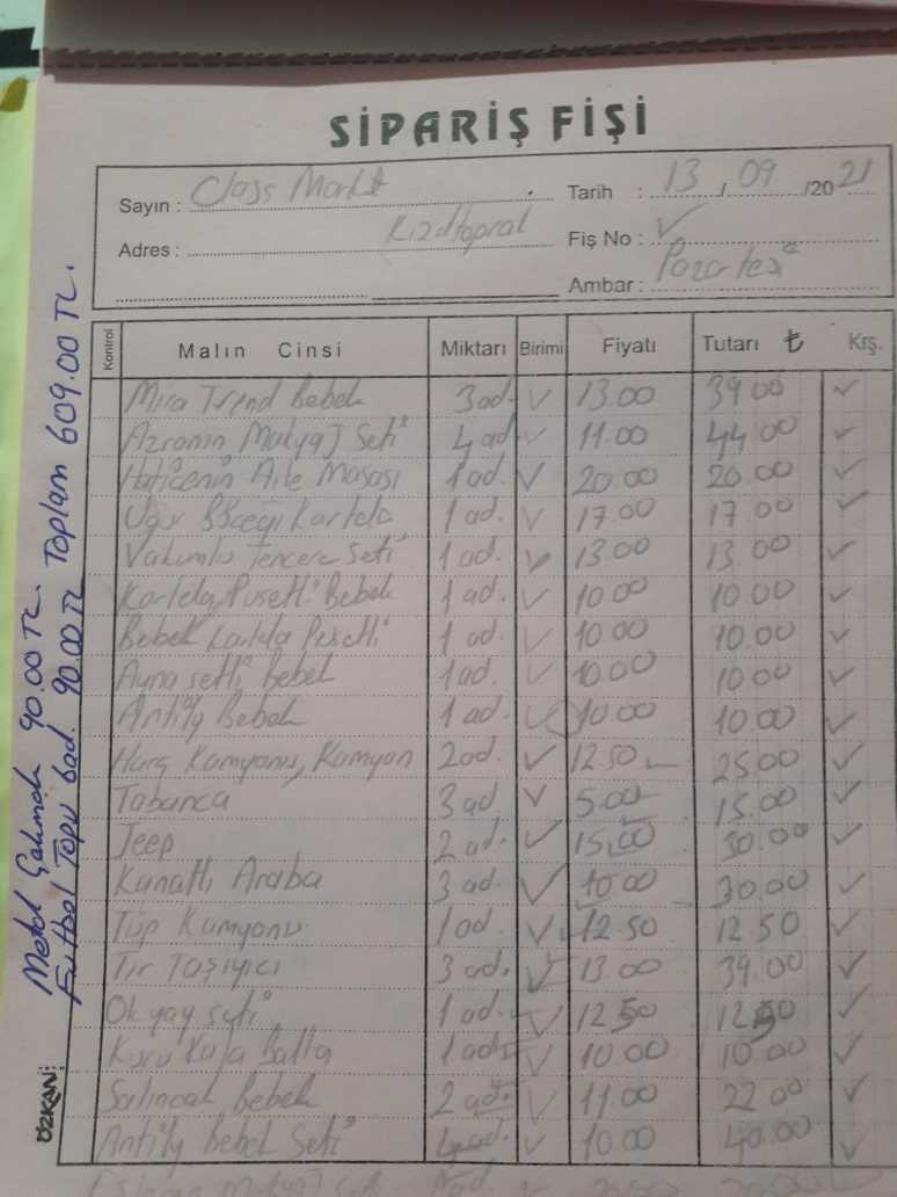 SİPARİŞ FİŞİ
Sayın : Class Markt
Tarih : 13 / 09 /20 21
Adres : Kızıltoprak
Fiş No : ✓
Ambar : Pazartesi
Kontrol Malın Cinsi Miktarı Birimi Fiyatı Tutarı ₺ Krş.
Mira Trend Bebek 3 ad. ✓ 13.00 39.00 ✓
Azranın Makyaj Seti 4 ad ✓ 11.00 44.00 ✓
Haticenin Aile Masası 1 ad. ✓ 20.00 20.00 ✓
Uğur Böceği Kartela 1 ad. ✓ 17.00 17.00 ✓
Vakumlu Tencere Seti 1 ad. ✓ 13.00 13.00 ✓
Kartela Pusetli Bebek 1 ad. ✓ 10.00 10.00 ✓
Bebek Kartela Pusetli 1 ad. ✓ 10.00 10.00 ✓
Ayna setli Bebek 1 ad. ✓ 10.00 10.00 ✓
Antily Bebek 1 ad. ✓ 10.00 10.00 ✓
Harç Kamyonu, Kamyon 2 ad. ✓ 12.50 25.00 ✓
Tabanca 3 ad ✓ 5.00 15.00 ✓
Jeep 2 ad. ✓ 15.00 30.00 ✓
Kanatlı Araba 3 ad. ✓ 10.00 30.00 ✓
Tüp Kamyonu 1 ad. ✓ 12.50 12.50 ✓
Tır Taşıyıcı 3 ad. ✓ 13.00 39.00 ✓
Ok yay seti 1 ad. ✓ 12.50 12.50 ✓
Kuru Kafa Balta 1 ad ✓ 10.00 10.00 ✓
Salıncak Bebek 2 ad. ✓ 11.00 22.00 ✓
Antily bebek Seti 4 ad. ✓ 10.00 40.00 ✓
Makyaj Seti
Metal Çakmak 90.00 TL. Toplam 609.00 TL.
Futbol Topu 6 ad. 90.00 TL
ÖZKAN